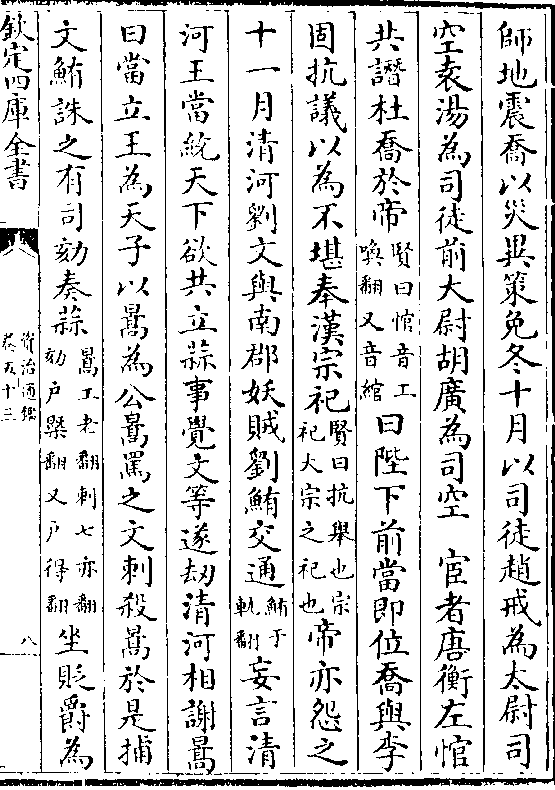 師地震喬以災異策免冬十月以司徒趙戒為太尉司
空袁湯為司徒前大尉胡廣為司空　宦者唐衡左悺
共譖杜喬於帝賢曰悺音工喚翻又音綰曰陛下前當即位喬與李
固抗議以為不堪奉漢宗祀賢曰抗舉也宗祀大宗之祀也帝亦怨之
十一月清河劉文與南郡妖賊劉鮪交通鮪于軌翻妄言清
河王當統天下欲共立蒜事覺文等遂刼清河相謝暠
曰當立王為天子以暠為公暠罵之文刺殺暠於是捕
文鮪誅之有司劾奏蒜暠工老翻刺七亦翻劾户槩翻又户得翻坐貶爵為
欽定四庫全書
資治通鑑
卷五十三
八